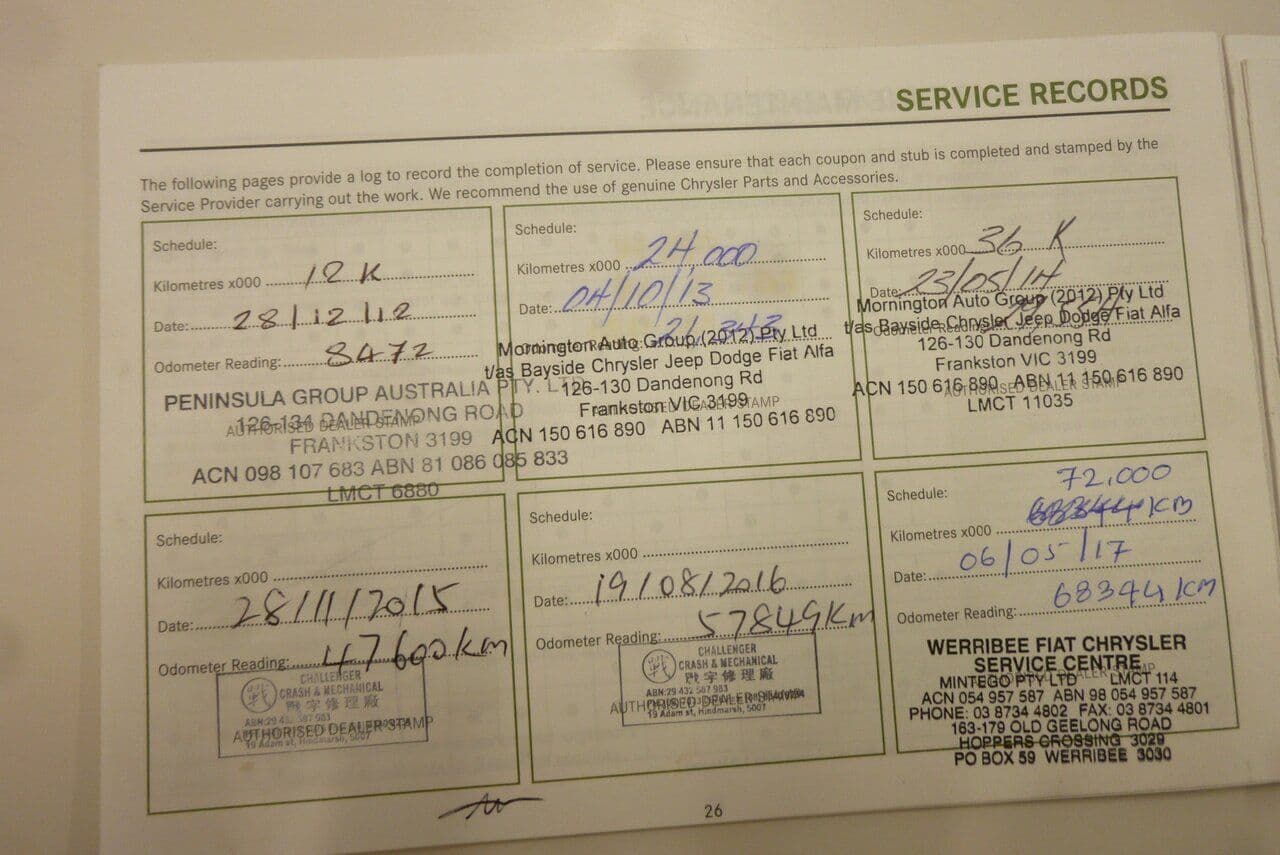 SERVICE RECORDS
The following pages provide a log to record the completion of service. Please ensure that each coupon and stub is completed and stamped by the
Service Provider carrying out the work. We recommend the use of genuine Chrysler Parts and Accessories.
Schedule:
Kilometres x000 12 K
Date: 28/12/12
Odometer Reading: 8472
PENINSULA GROUP AUSTRALIA PTY. LTD
126-134 DANDENONG ROAD
AUTHORISED DEALER STAMP
FRANKSTON 3199
ACN 098 107 683 ABN 81 086 085 833
LMCT 6880
Schedule:
Kilometres x000 24,000
Date: 04/10/13
Odometer Reading: 21,343
Mornington Auto Group (2012) Pty Ltd
t/as Bayside Chrysler Jeep Dodge Fiat Alfa
126-130 Dandenong Rd
Frankston VIC 3199
AUTHORISED DEALER STAMP
ACN 150 616 890 ABN 11 150 616 890
Schedule:
Kilometres x000 36 K
Date: 23/05/14
Odometer Reading:
Mornington Auto Group (2012) Pty Ltd
t/as Bayside Chrysler Jeep Dodge Fiat Alfa
126-130 Dandenong Rd
Frankston VIC 3199
ACN 150 616 890 ABN 11 150 616 890
AUTHORISED DEALER STAMP
LMCT 11035
Schedule:
Kilometres x000
Date: 28/11/2015
Odometer Reading: 47600km
CHALLENGER
CRASH & MECHANICAL
戰字修理廠
ABN:29 432 587 983
AUTHORISED DEALER STAMP
19 Adam st, Hindmarsh, 5007
Schedule:
Kilometres x000
Date: 19/08/2016
Odometer Reading: 57849Km
CHALLENGER
CRASH & MECHANICAL
戰字修理廠
ABN:29 432 587 983
AUTHORISED DEALER STAMP
19 Adam st, Hindmarsh, 5007
72,000
Schedule:
Kilometres x000 68344 KM
Date: 06/05/17
Odometer Reading: 68344 KM
WERRIBEE FIAT CHRYSLER
SERVICE CENTRE
AUTHORISED DEALER STAMP
MINTEGO PTY LTD LMCT 114
ACN 054 957 587 ABN 98 054 957 587
PHONE: 03 8734 4802 FAX: 03 8734 4801
163-179 OLD GEELONG ROAD
HOPPERS CROSSING 3029
PO BOX 59 WERRIBEE 3030
26